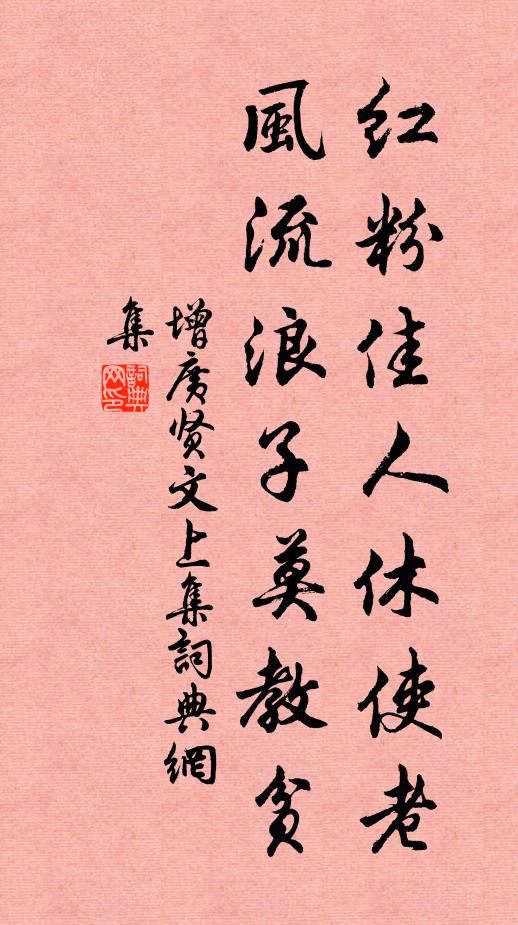 紅粉佳人休使老
風流浪子莫教貧
增廣贤文上集詞典網
集
詞典
网印